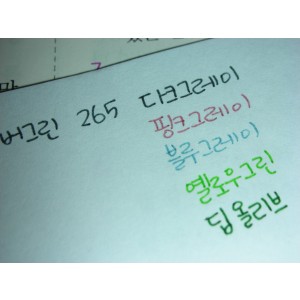 버그린 265 다크그레이
핑크그레이
블루그레이
옐로우그린
딥올리브